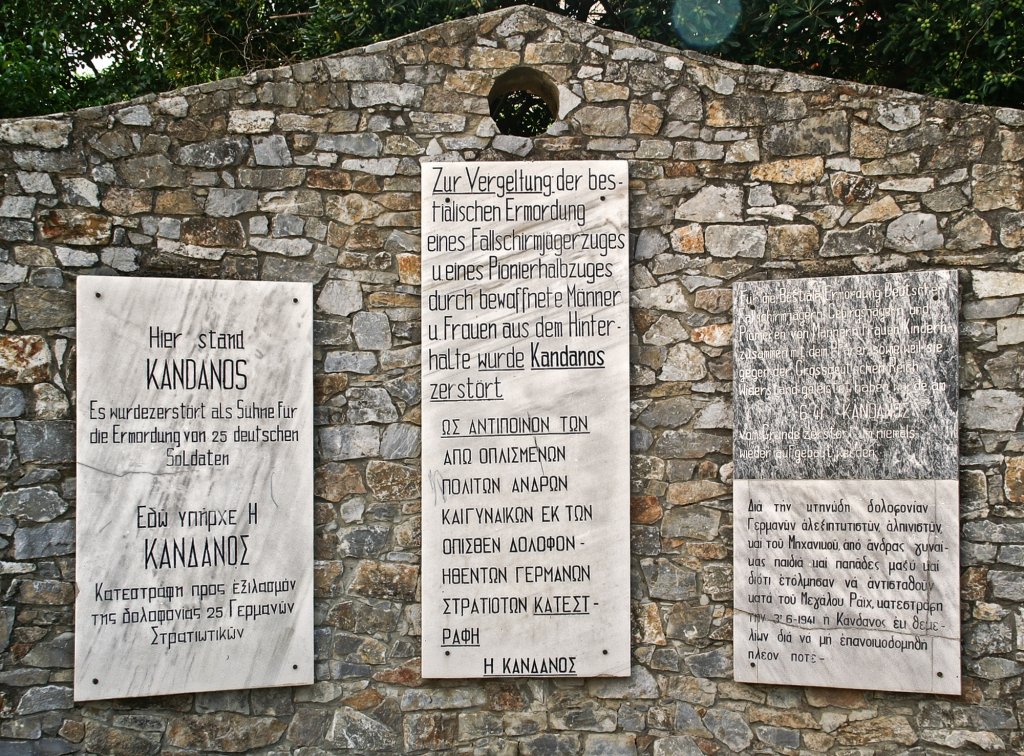 Hier stand
KANDANOS
Es wurdezerstört als Sühne für
die Ermordung von 25 deutschen
Soldaten
Εδώ υπήρχε Η
ΚΑΝΔΑΝΟΣ
Κατεστράφη προς εξιλασμόν
της δολοφονίας 25 Γερμανών
Στρατιωτικών
Zur Vergeltung der bes-
tialischen Ermordung
eines Fallschirmjägerzuges
u.eines Pionierhalbzuges
durch bewaffnete Männer
u Frauen aus dem Hinter-
halte wurde Kandanos
zerstört
ΩΣ ΑΝΤΙΠΟΙΝΟΝ ΤΩΝ
ΑΠΟ ΟΠΛΙΣΜΕΝΩΝ
ΠΟΛΙΤΩΝ ΑΝΔΡΩΝ
ΚΑΙΓΥΝΑΙΚΩΝ ΕΚ ΤΩΝ
ΟΠΙΣΘΕΝ ΔΟΛΟΦΟΝ-
ΗΘΕΝΤΩΝ ΓΕΡΜΑΝΩΝ
ΣΤΡΑΤΙΟΤΩΝ ΚΑΤΕΣΤ-
ΡΑΦΗ
Η ΚΑΝΔΑΝΟΣ
Für die Bestiale Ermordung Deutschen
Fallschirmjägern, Gebirgsjägern und
Pionieren von Männern, Frauen, Kindern
zusammen mit dem
gegen der Grossdeutschen Reich
Widerstand geleistet haben wurde am
KANDANOS
von Grunde zerstört, um niemels
wieder aufgebaut werden
Διά την κτηνώδη δολοφονίαν
Γερμανών αλεξιπτωτιστών, αλπινιστών,
και του Μηχανικού, από άνδρας γυναι-
κας παιδιά και παπάδες μαζύ και
διότι ετόλμησαν να αντισταθούν
κατά του Μεγάλου Ράιχ, κατεστράφη
την 3ⁿ 6-1941 η Κάνδανος εκ θεμε-
λίων διά να μη επανοικοδομηθή
πλέον ποτέ-